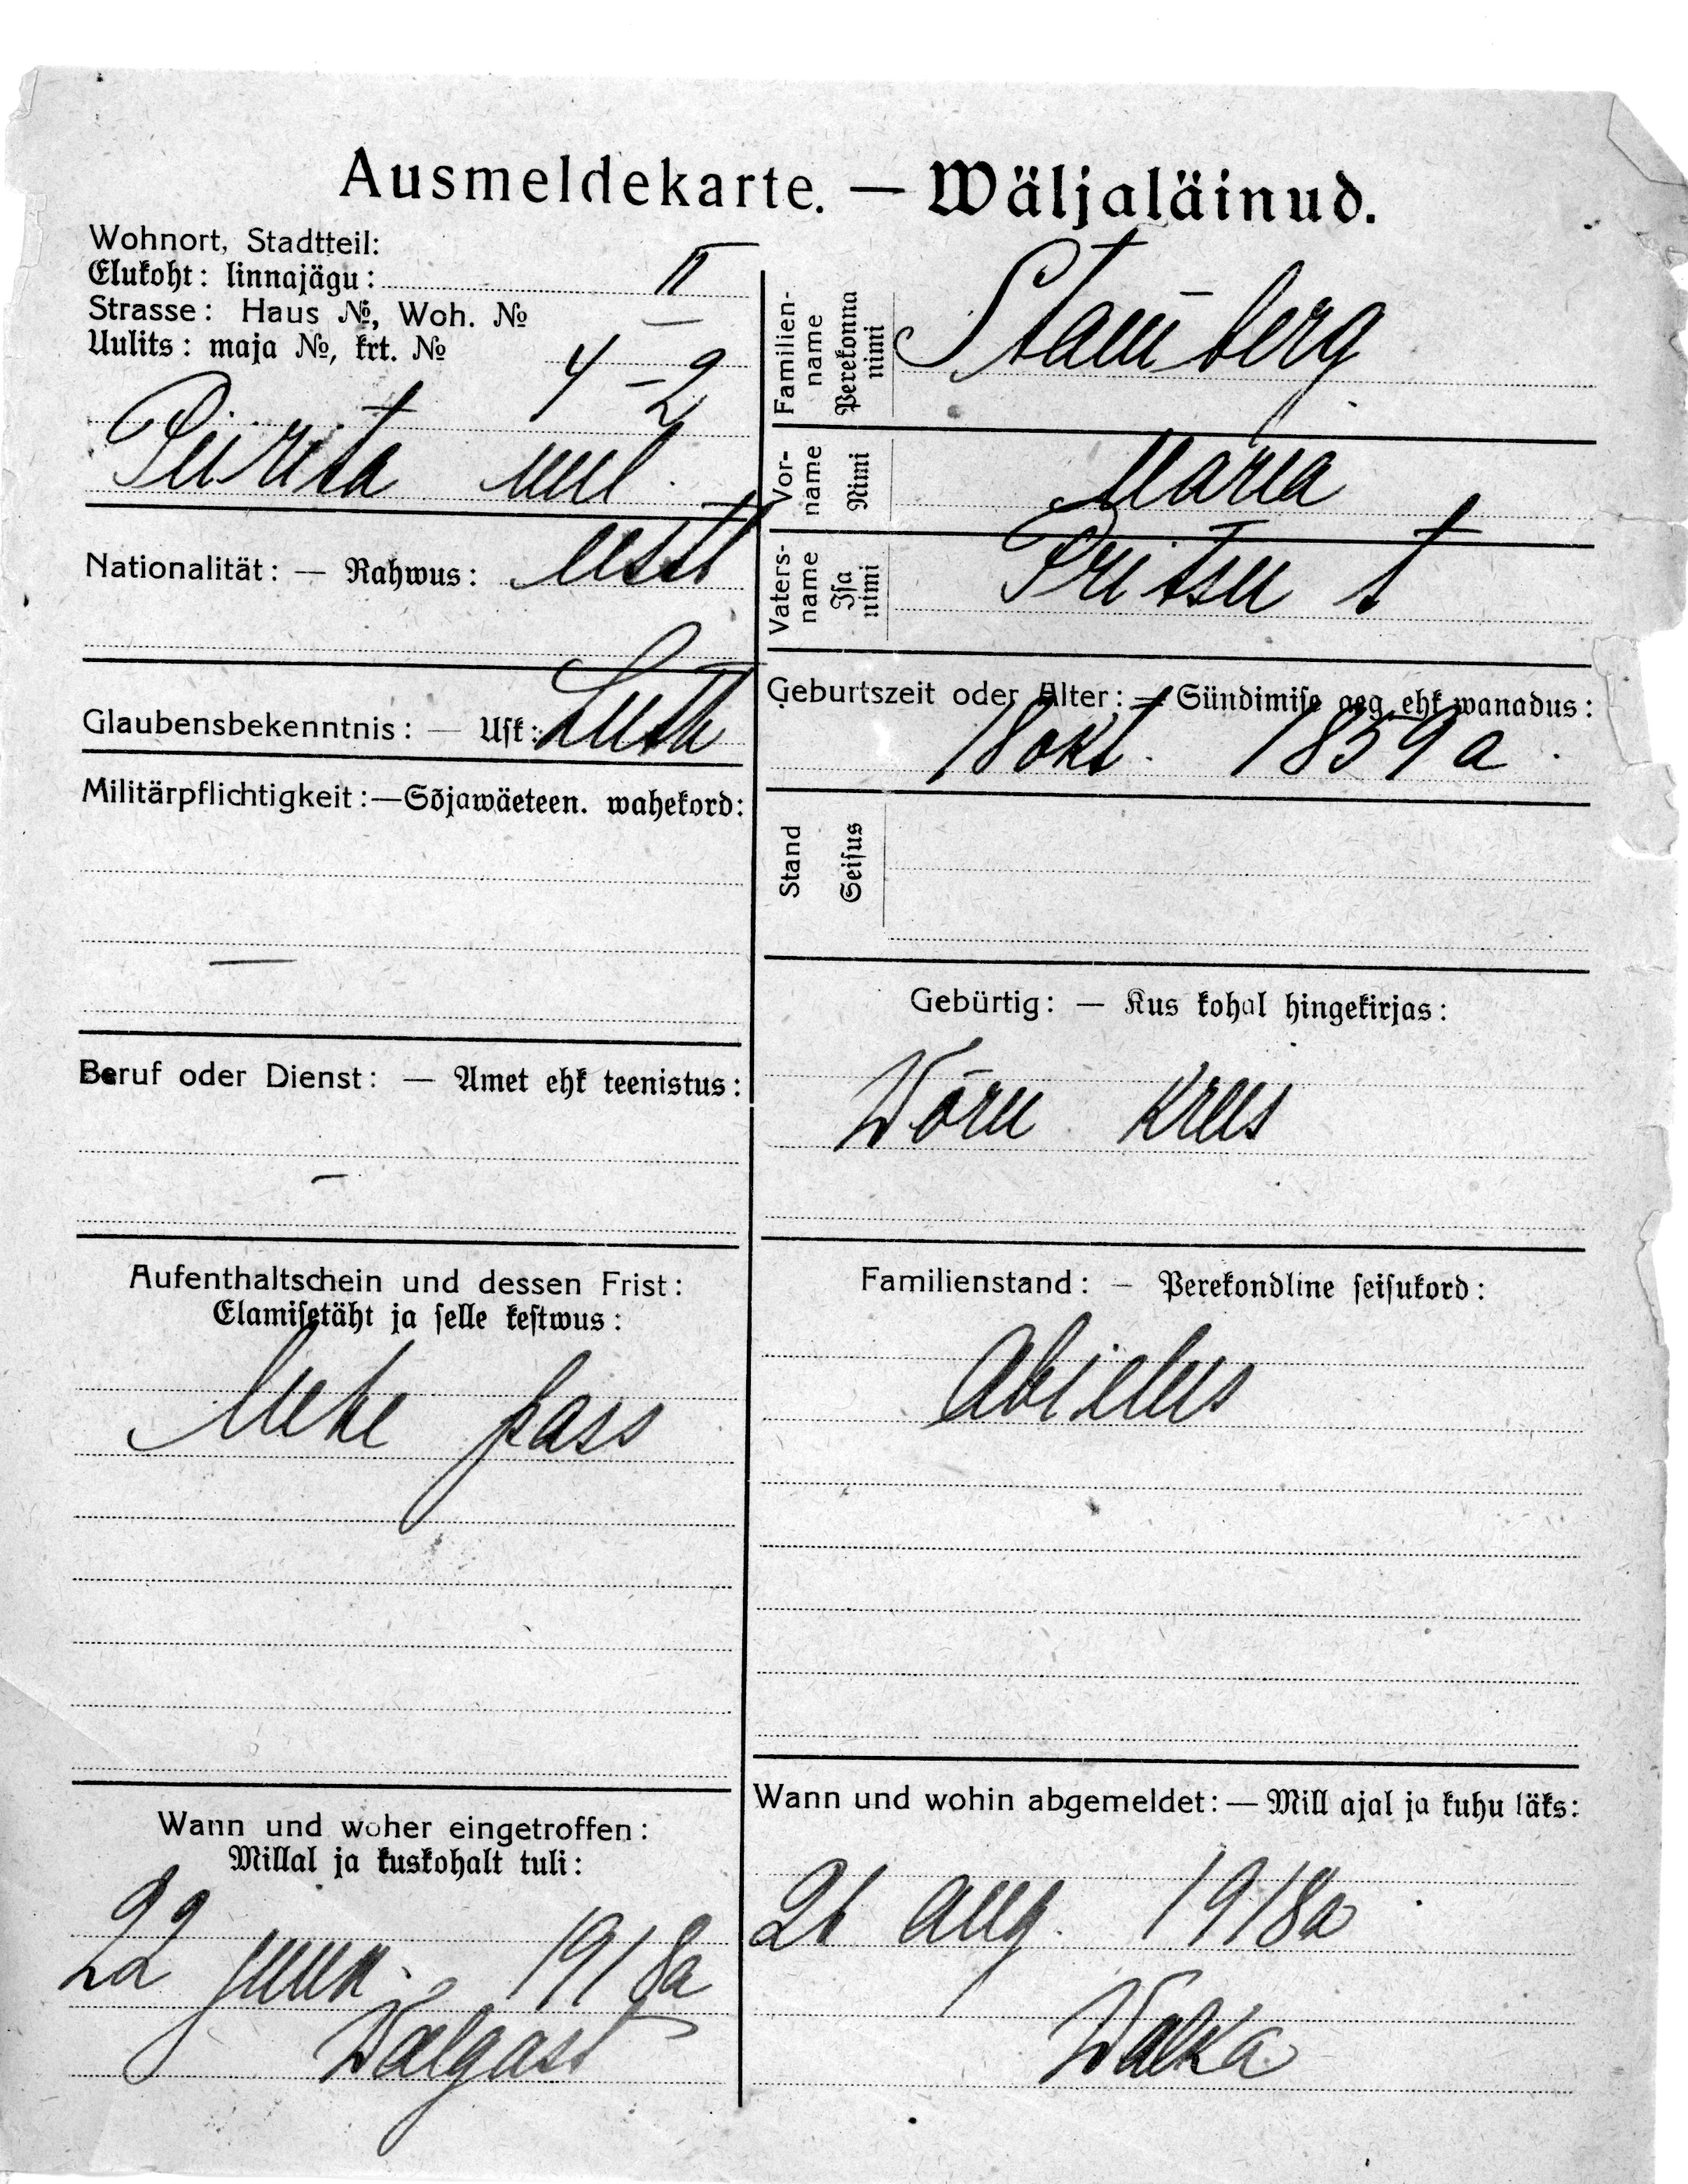 Ausmeldekarte. — Wäljaläinud.
Wohnort, Stadtteil:
Elukoht: linnajägu: II
Strasse: Haus №, Woh. №
Uulits: maja №, krt. № 4–2
Piirita uul.
Nationalität: — Rahwus: eesti
Glaubensbekenntnis: — Usk: Luth
Militärpflichtigkeit:—Sõjawäeteen. wahekord:
—
Beruf oder Dienst: — Amet ehk teenistus:
—
Aufenthaltschein und dessen Frist:
Elamisetäht ja selle kestwus:
Mehe pass
Wann und woher eingetroffen:
Millal ja kuskohalt tuli:
22 juun. 1918a
Walgast
Familien-
name
Perekonna
nimi
Stamberg
Vor-
name
Nimi
Maria
Vaters-
name
Isa
nimi
Pritsu t
Geburtszeit oder Alter: — Sündimise aeg ehk wanadus:
18 okt. 1859 a.
Stand
Seisus
Gebürtig: — Kus kohal hingekirjas:
Wõru kreis
Familienstand: — Perekondline seisukord:
Abielus
Wann und wohin abgemeldet: — Mill ajal ja kuhu läks:
26 aug. 1918a
Walka